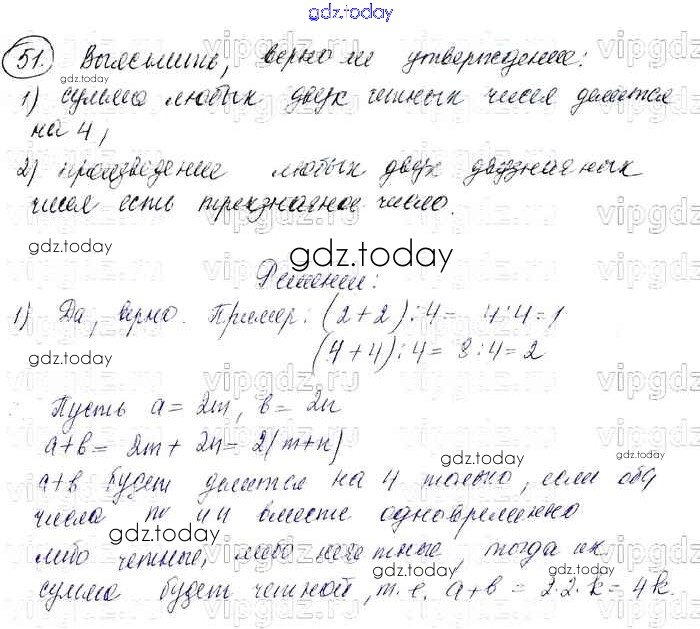 gdz.today
51. Выяснить, верно ли утверждение:
gdz.today
1) сумма любых двух четных чисел делится
на 4;
2) произведение любых двух двузначных
чисел есть трехзначное число.
gdz.today
gdz.today
Решение:
1) Да, верно. Пример: (2+2):4= 4:4=1
(4+4):4= 8:4=2
gdz.today
Пусть a=2m, b=2n
a+b= 2m+2n= 2(m+n)
gdz.today
a+b будет делится на 4 только, если оба
числа m и n вместе одновременно
gdz.today
либо четные, либо нечетные, тогда их
gdz.today
сумма будет четной, т.е. a+b = 2·2·k= 4k
gdz.today